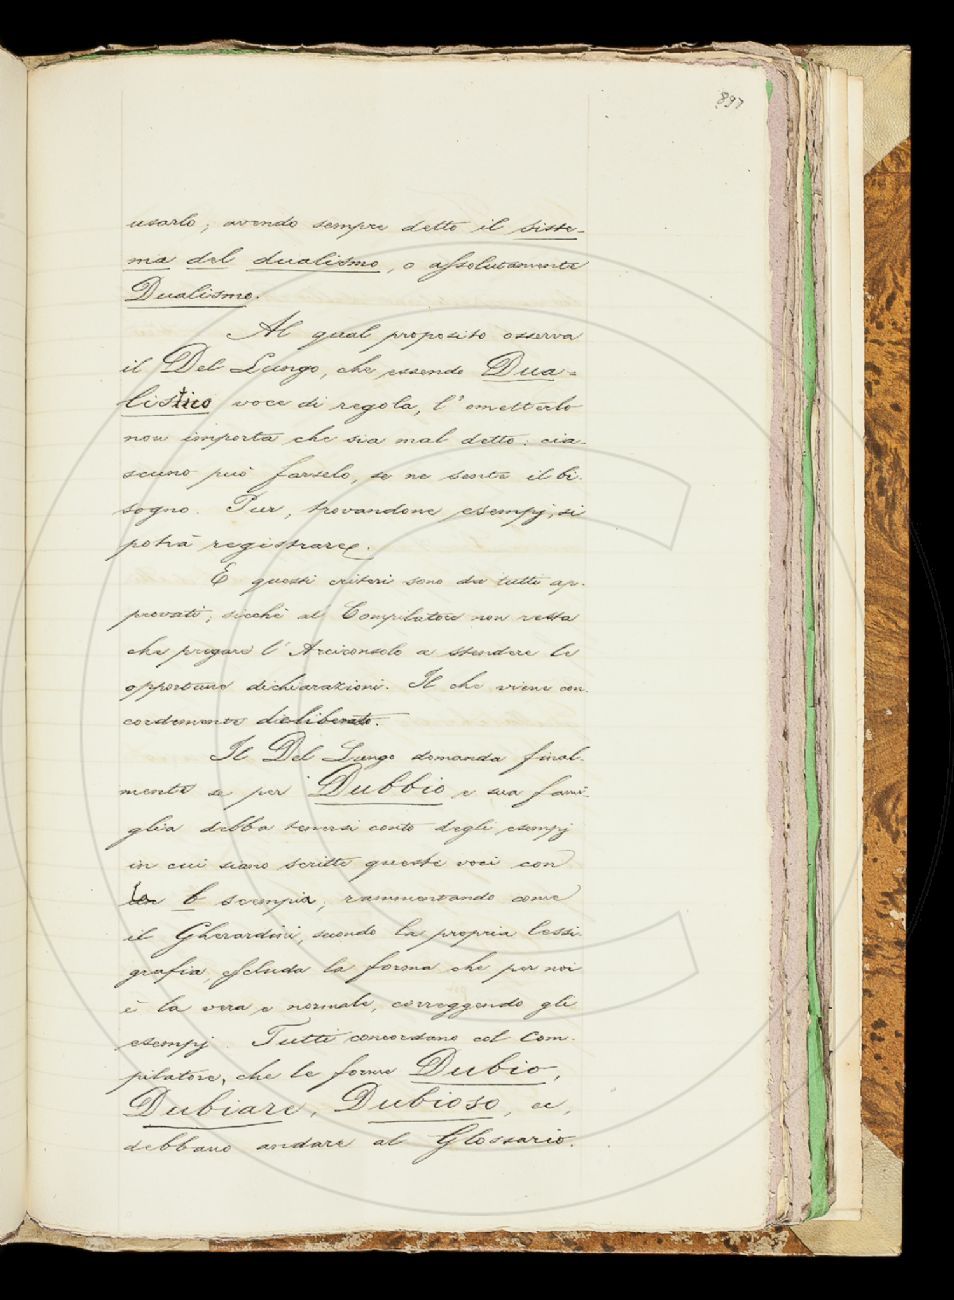 897
usarlo; avendo sempre detto il siste-
ma del dualismo, o assolutamente
Dualismo.
Al qual proposito osserva
il Del Lungo, che essendo Dua-
listico voce di regola, l'ometterlo
non importa che sia mal detto: cia-
scuno può farselo, se ne sente il bi-
sogno. Pur, trovandone esempj, si
potrà registrare.
E questi criteri sono da tutti ap-
provati; sicchè al Compilatore non resta
che pregare l'Arciconsolo a stendere le
opportune dichiarazioni. Il che viene con-
cordemente deliberato.
Il Del Lungo domanda final-
mente se per Dubbio e sua fami-
glia debba tenersi conto degli esempj
in cui siano scritte queste voci con
b scempia, rammentando come
il Gherardini, secondo la propria lessi-
grafia, escluda la forma che per noi
è la vera e normale, correggendo gli
esempj. Tutti concordano col Com-
pilatore, che le forme Dubio,
Dubiare, Dubioso, ec,
debbano andare al Glossario.